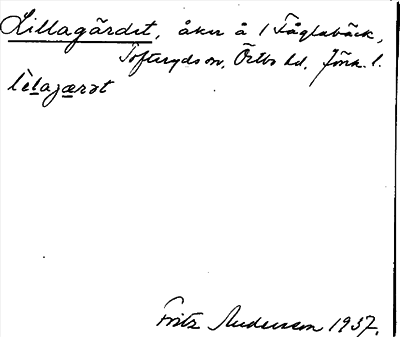 Lillagärdet, åker å 1 Fåglabäck,
Tofteryds sn, Östbo hd, Jönk. l.
lìlajærət
Fritz Andersson 1937.